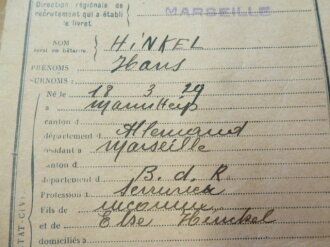 Direction régionale de
recrutement qui a établi
le livret.
MARSEILLE
NOM HINKEL
PRÉNOMS Hans
SURNOMS :
Né le 18 3 29
à Mannheip
canton d
département d Allemand
résidant à Marseille
canton d
département d B. d. R.
Profession : Serrurier
Fils de inconnu
et d Else Hinkel
domiciliés à
ÉTAT-CIV